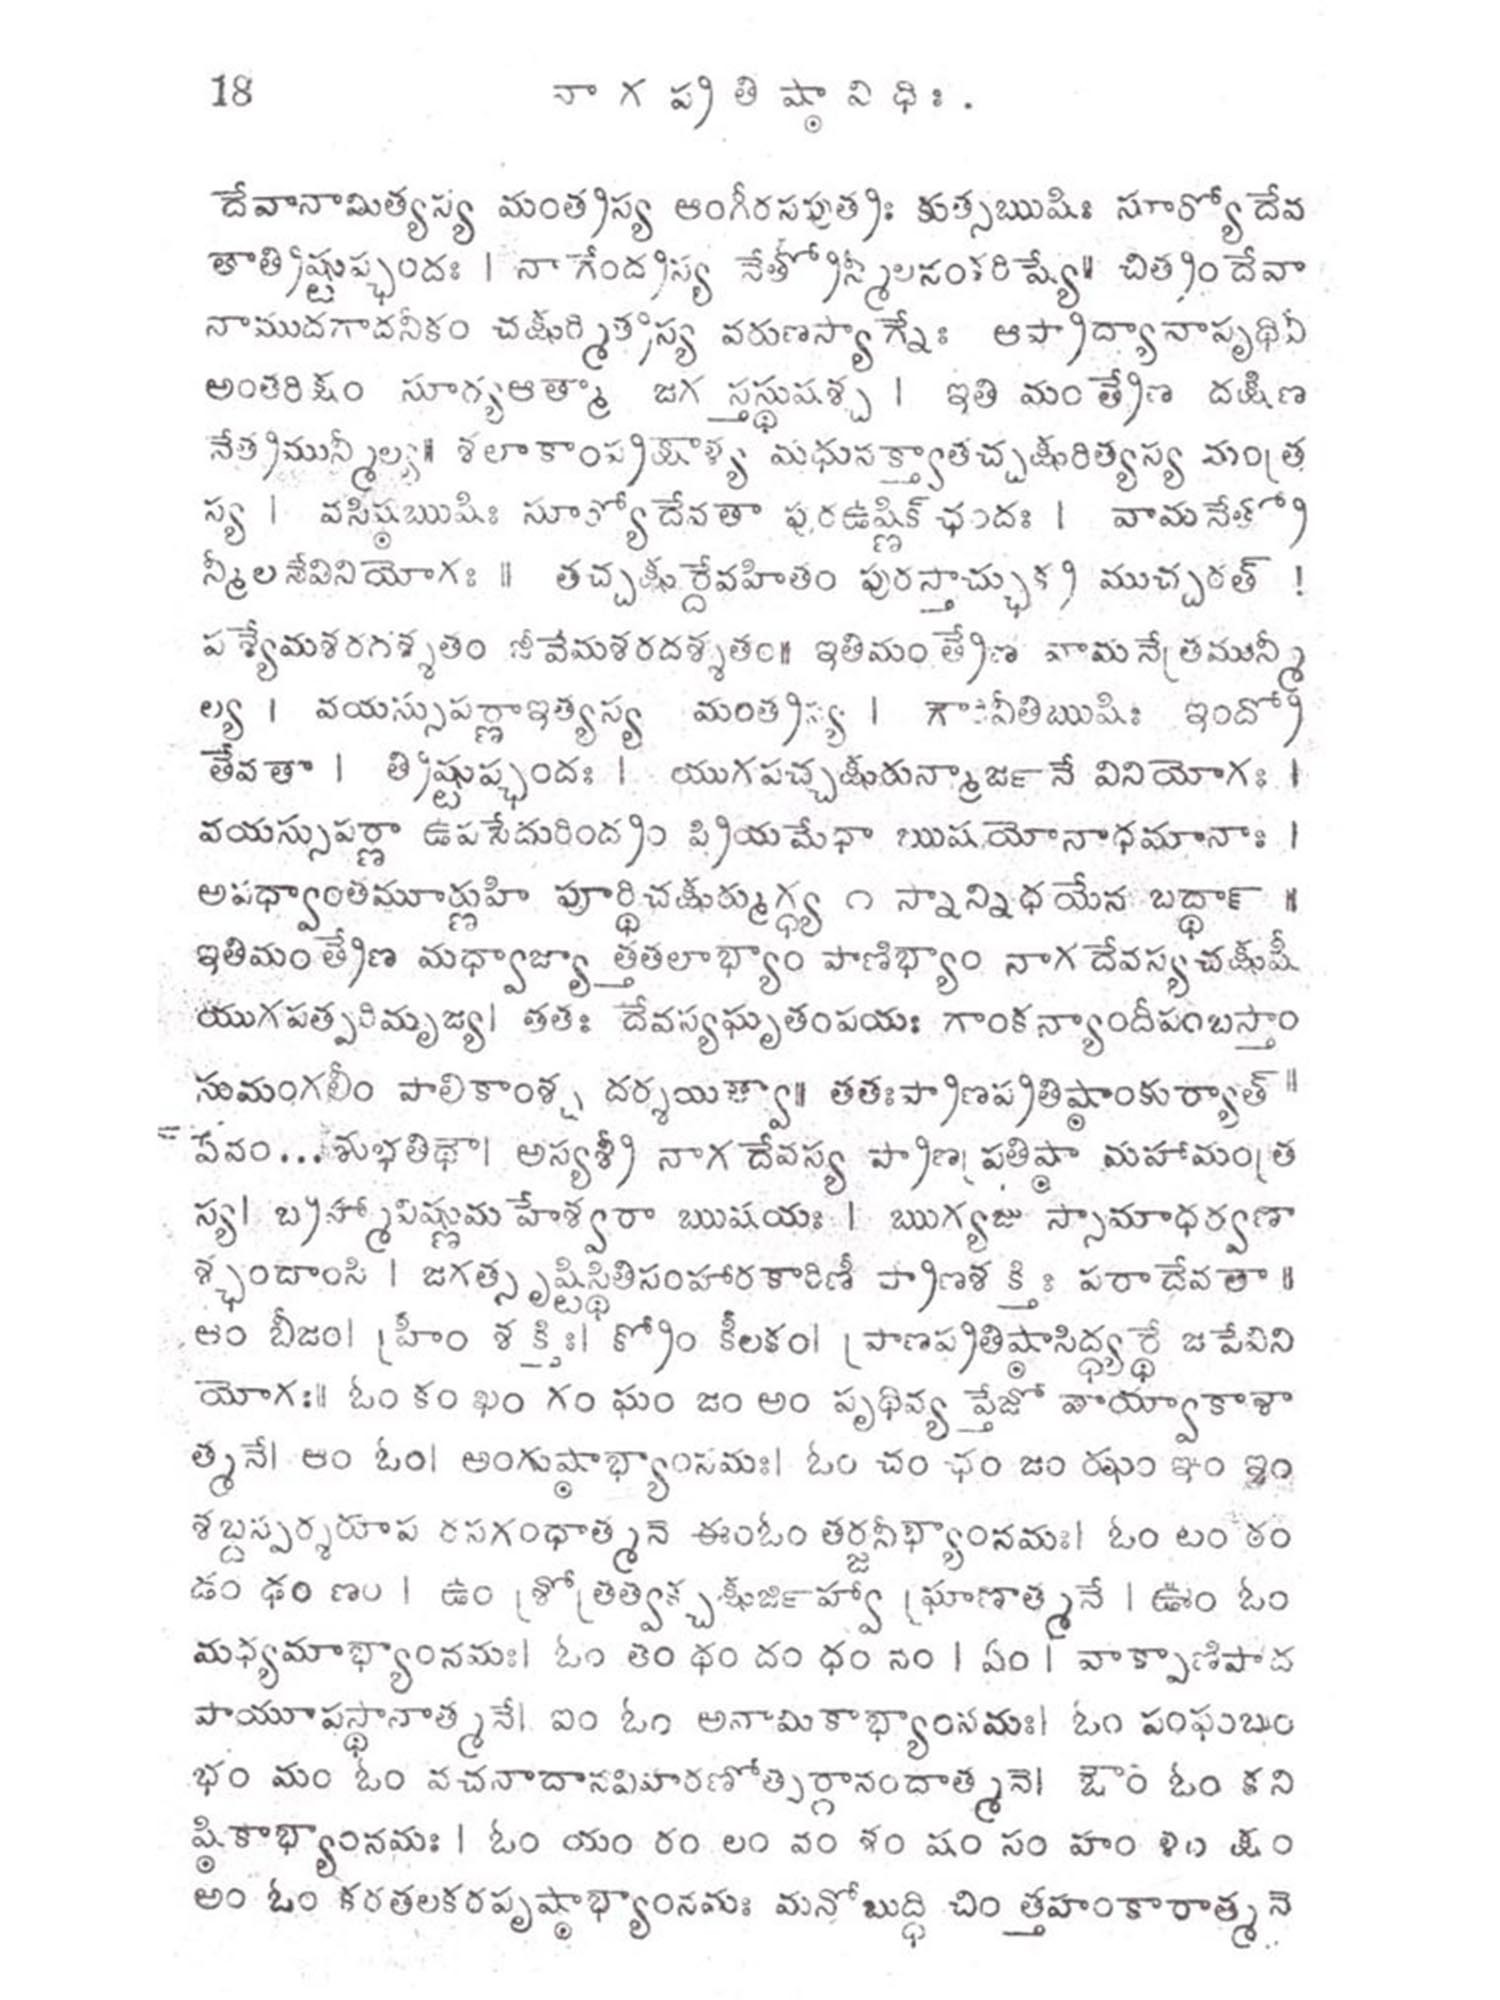 18 నాగప్రతిష్ఠానిధిః.
దేవానామిత్యస్య మంత్రస్య ఆంగీరసపుత్రః కుత్సఋషిః సూర్యోదేవ
తాత్రిష్టుప్ఛందః । నాగేంద్రస్య నేత్రోన్మీలనంకరిష్యే॥ చిత్రందేవా
నాముదగాదనీకం చక్షుర్మిత్రస్య వరుణస్యాగ్నేః ఆప్రాద్యావాపృథివీ
అంతరిక్షం సూర్యఆత్మా జగ స్తస్థుషశ్చ । ఇతి మంత్రేణ దక్షిణ
నేత్రమున్మీల్య॥ శలాకాంప్రక్షాళ్య మధునక్త్వాతచ్చక్షురిత్యస్య మంత్ర
స్య । వసిష్ఠఋషిః సూర్యోదేవతా పురఉష్ణిక్ ఛందః । వామనేత్రో
న్మీలనేవినియోగః ॥ తచ్చక్షుర్దేవహితం పురస్తాచ్ఛుక్ర ముచ్చరత్ !
పశ్యేమశరదశ్శతం జీవేమశరదశ్శతం॥ ఇతిమంత్రేణ వామనేత్రమున్మీ
ల్య । వయస్సుపర్ణాఇత్యస్య మంత్రస్య । గౌరివీతిఋషిః ఇంద్రో
దేవతా । త్రిష్టుప్ఛందః । యుగపచ్చక్షురున్మార్జనే వినియోగః ।
వయస్సుపర్ణా ఉపసేదురింద్రం ప్రియమేధా ఋషయోనాధమానాః ।
అపధ్వాంతమూర్ణుహి పూర్థిచక్షుర్ముగ్ధ్య ౧ స్నాన్నిధయేన బద్ధార్ ॥
ఇతిమంత్రేణ మధ్వాజ్యా త్తతలాభ్యాం పాణిభ్యాం నాగదేవస్యచక్షుషీ
యుగపత్పరిమృజ్య। తతః దేవస్యఘృతంపయః గాంకన్యాందీపంబస్తాం
సుమంగలీం పాలికాంశ్చ దర్శయిత్వా॥ తతఃప్రాణప్రతిష్ఠాంకుర్యాత్॥
ఏవం...శుభతిథౌ। అస్యశ్రీ నాగదేవస్య ప్రాణప్రతిష్ఠా మహామంత్ర
స్య। బ్రహ్మావిష్ణుమహేశ్వరా ఋషయః । ఋగ్యజు స్సామాధర్వణా
శ్ఛందాంసి । జగత్సృష్టిస్థితిసంహారకారిణీ ప్రాణశక్తిః పరాదేవతా॥
ఆం బీజం। హ్రీం శక్తిః। క్రోం కీలకం। ప్రాణప్రతిష్ఠాసిద్ధ్యర్థే జపేవిని
యోగః॥ ఓం కం ఖం గం ఘం జం అం పృథివ్య ప్తేజో వాయ్వాకాశా
త్మనే। ఆం ఓం। అంగుష్ఠాభ్యాంనమః। ఓం చం ఛం జం ఝం ఞం ఇం
శబ్దస్పర్శరూప రసగంధాత్మనె ఈంఓం తర్జనీభ్యాంనమః। ఓం టం ఠం
డం ఢం ణం । ఉం శ్రోత్రత్వక్చక్షుర్జిహ్వా ఘ్రాణాత్మనే । ఊం ఓం
మధ్యమాభ్యాంనమః। ఓం తం థం దం ధం నం । ఏం । వాక్పాణిపాద
పాయూపస్థానాత్మనే। ఐం ఓం అనామికాభ్యాంనమః। ఓం పంఫంబం
భం మం ఓం వచనాదానవిహరణోత్సర్గానందాత్మనె। ఔం ఓం కని
ష్ఠికాభ్యాంనమః । ఓం యం రం లం వం శం షం సం హం ళం క్షం
అం ఓం కరతలకరపృష్ఠాభ్యాంనమః మనోబుద్ధి చిం త్తహంకారాత్మనె